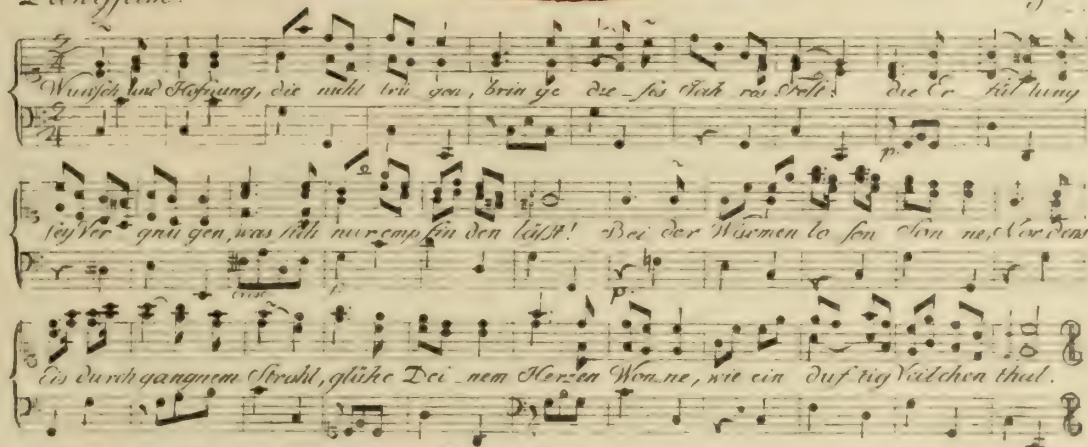 Wunsch und Hofnung, die nicht trü gen, brin ge die - ses Jah res Frist! die Er fül lung
sey Ver - gnü gen, was sich nur emp fin den läßt! Bei der
Eis durch gangnem Strahl, glühe Dei - nem Herzen Won - ne, wie ein duf tig Veilchen thal.